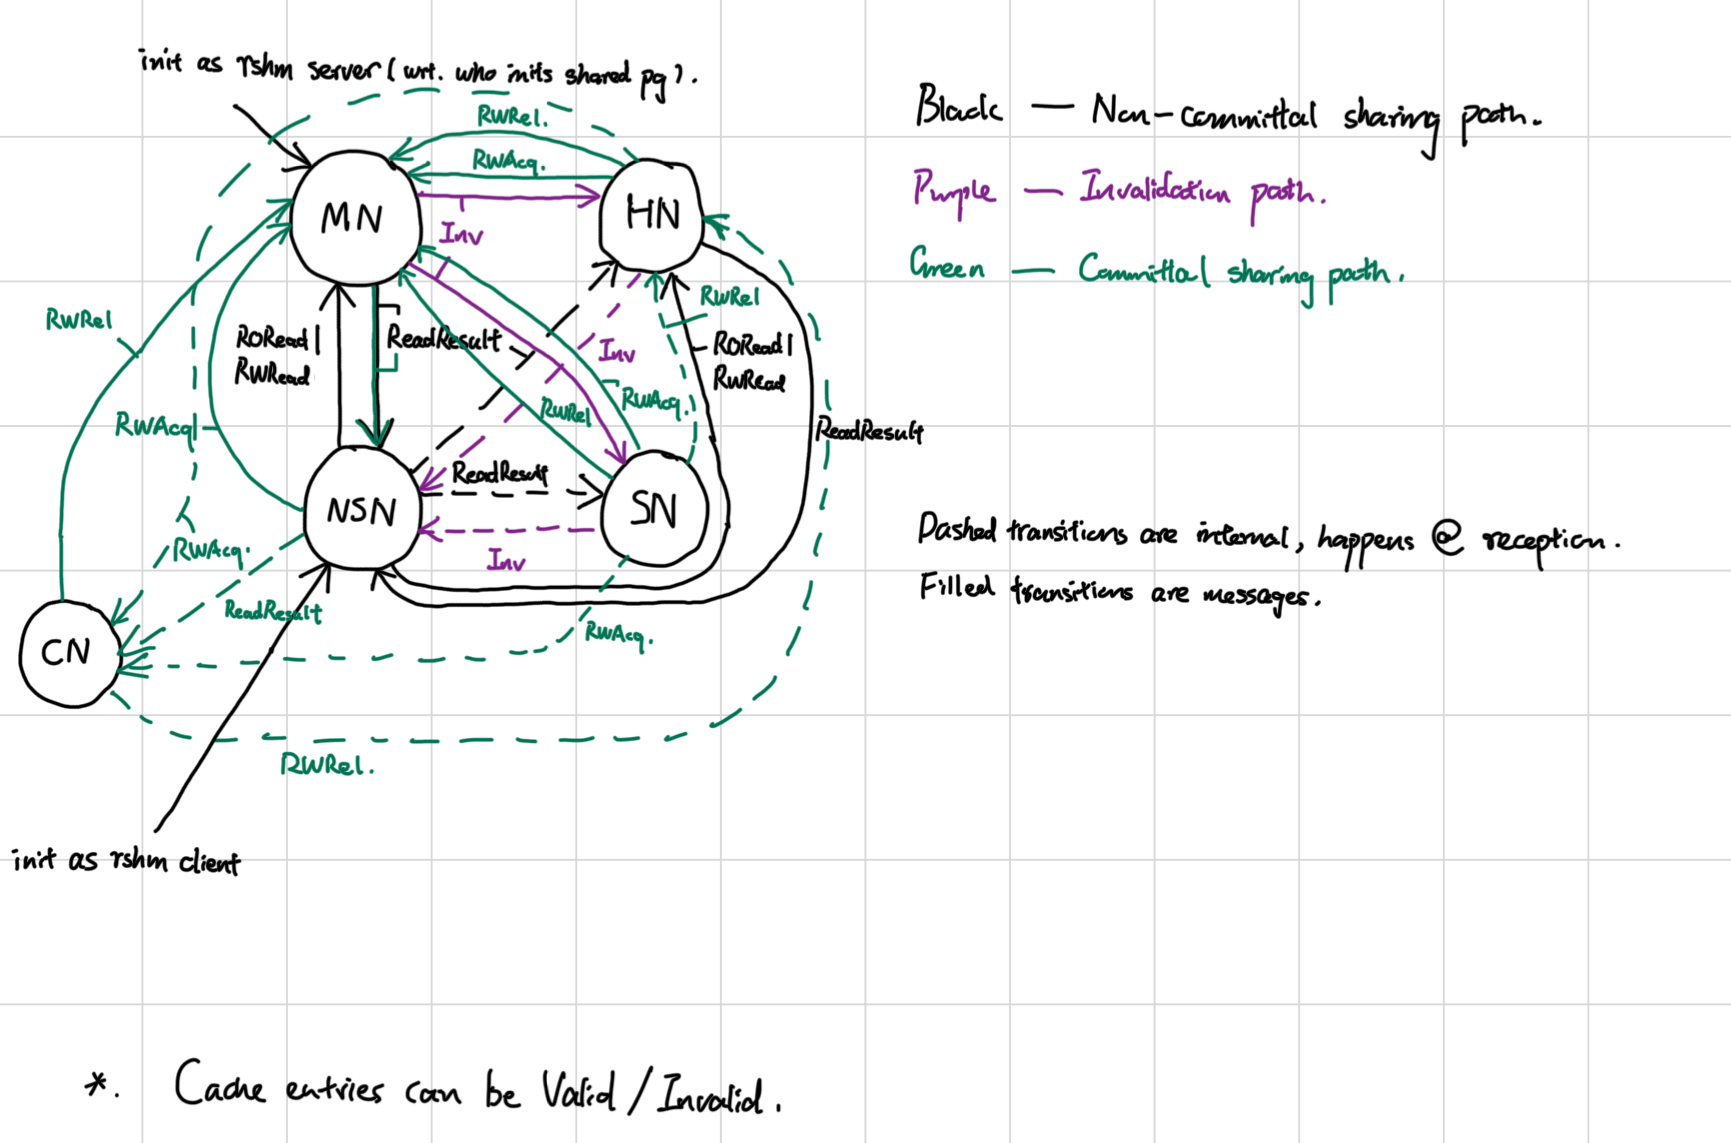 init as rshm server (wrt. who inits shared pg).
RWRel.
RWAcq.
MN
HN
Inv
RWRel
RORead|
RWRead
ReadResult
Inv
RWRel
RORead|
RwRead
RWAcq
RWRel
RWAcq.
ReadResult
ReadResult
NSN
SN
Inv
RWAcq.
ReadResult
RWAcq.
CN
RWRel.
init as rshm client
Black — Non-committal sharing path.
Purple — Invalidation path.
Green — Committal sharing path.
Dashed transitions are internal, happens @ reception.
Filled transitions are messages.
*. Cache entries can be Valid / Invalid.